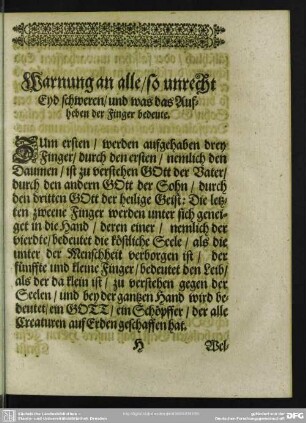 Warnung an alle/so unrecht
Eyd schweren/und was das Auf-
heben der Finger bedeute.
ZUm ersten/ werden aufgehaben drey
Finger/durch den ersten/ nemlich den
Daumen/ ist zu verstehen GOtt der Vater/
durch den andern GOtt der Sohn/ durch
den dritten GOtt der heilige Geist: Die letz-
ten zweene Finger werden unter sich genei-
get in die Hand/ deren einer/ nemlich der
vierdte/bedeutet die köstliche Seele/ als die
unter der Menschheit verborgen ist/ der
fünffte und kleine Finger/bedeutet den Leib/
als der da klein ist/ zu verstehen gegen der
Seelen/ und bey der gantzen Hand wird be-
deutet/ein GOTT/ein Schöpffer/der alle
Creaturen auf Erden geschaffen hat.
H Wel-